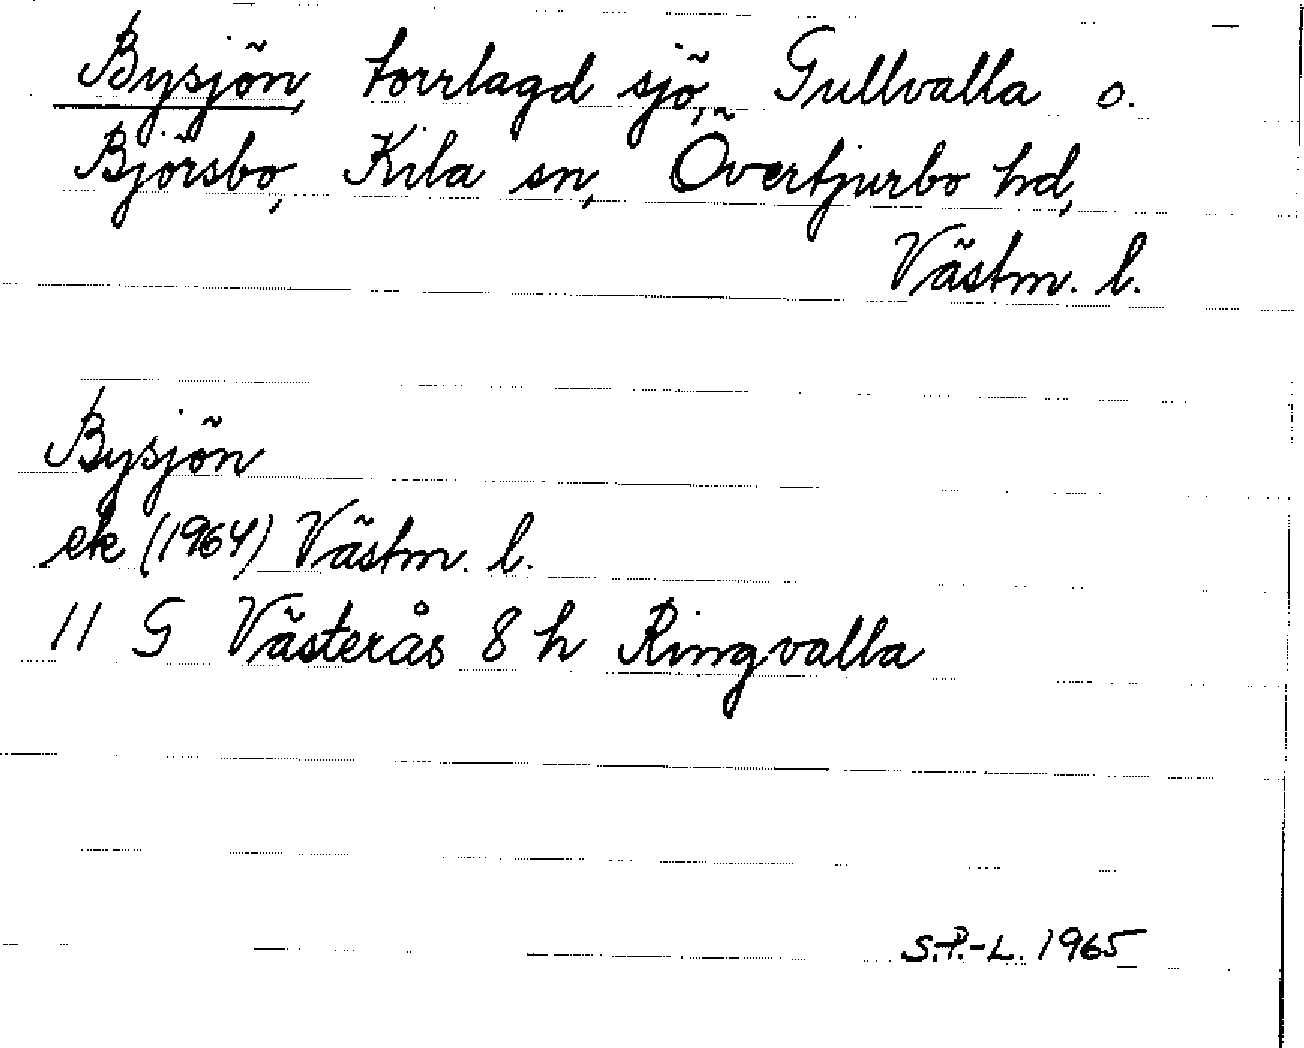 Bysjön, torrlagd sjö, Gullvalla o.
Björsbo, Kila sn, Övertjurbo hd,
Västm. l.
Bysjön
ek (1964) Västm. l.
11 G Västerås 8 h Ringvalla
S.P.-L. 1965